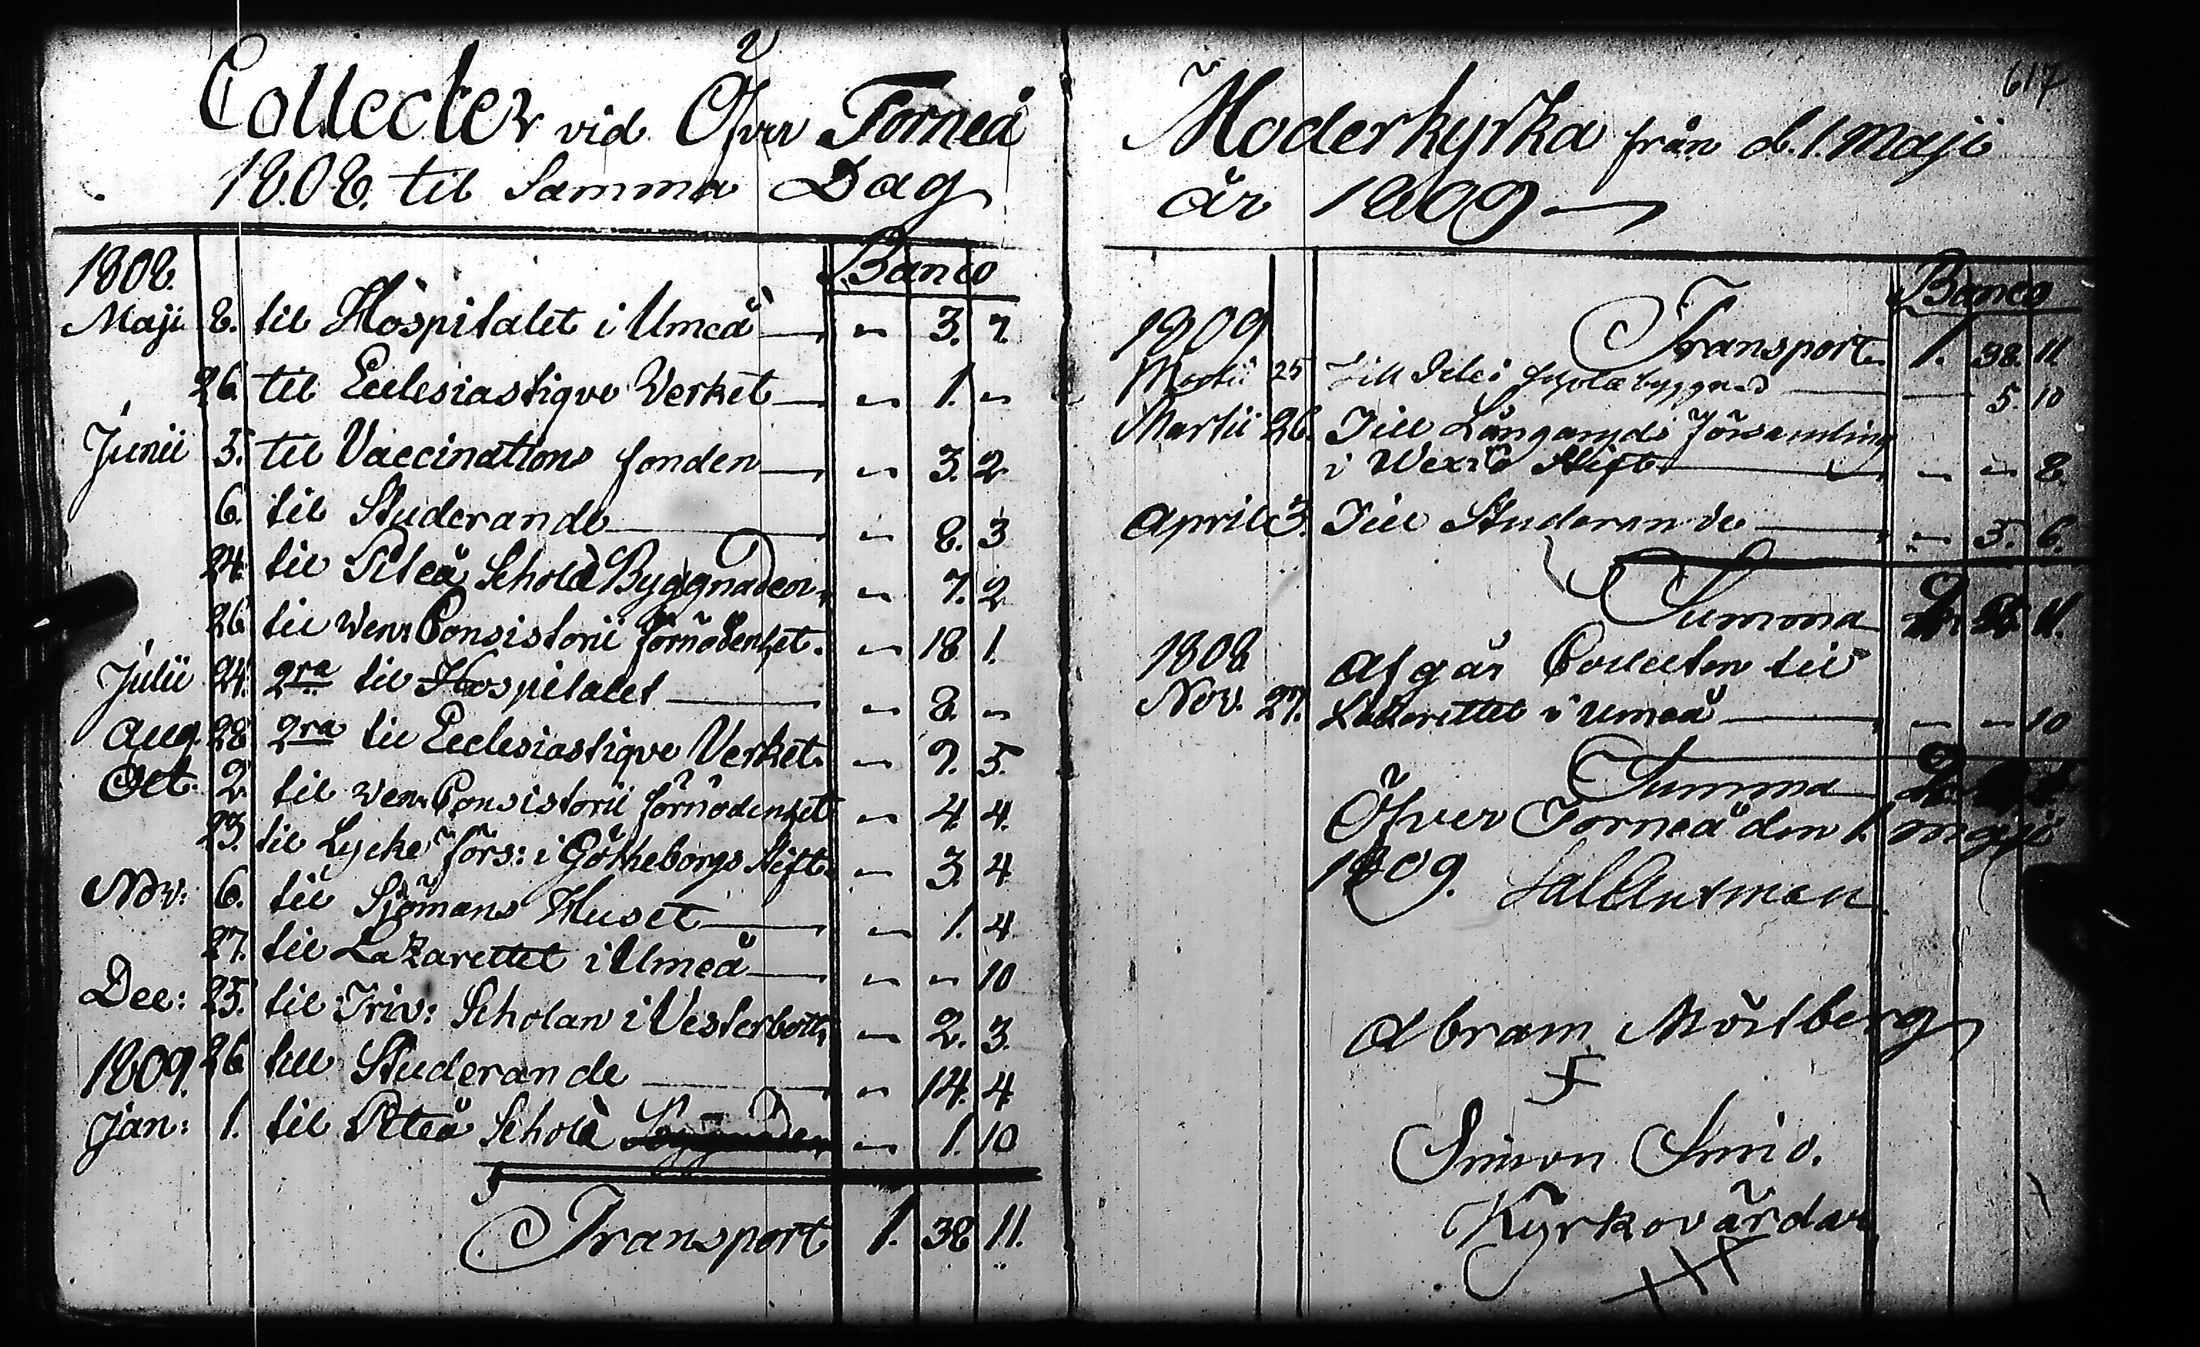 617
Collecter vid Öfver Torneå
1808. til Samma Dag
Banco
1808.
Maji 8. til Hospitalet i Umeå — " 3. 7.
26. til Ecclesiastique Verket — " 1. "
Junii 5. til Vaccinations fonden — " 3. 2
6. til Studerande — " 8. 3
24. til Piteå Schole Byggnaden. " 7. 2
26 til Ven: Consistorii förnödenhet. " 18 1.
Julii 24. 2ra til Hospitalet — " 8. "
Aug. 28 2ra til Ecclesiastique Verket. " 7. 5.
Oct. 2 til Ven: Consistorii förnödenhet " 4. 4.
23. til Lycke förs: i Götheborgs Stift. " 3. 4
Nov: 6. til Sjömans Huset — " 1. 4
27. til Lazarettet i Umeå — " " 10
Dec: 25. til Triv: Scholan i Vesterbott: " 2. 3.
26 till Studerande — " 14. 4
1809.
Jan: 1. til Piteå Schole Byggnaden " 1. 10
Transport 1. 38 11.
Moderkyrka från d. 1. Maji
år 1809 —
Banco
1809 Transport 1. 38. 11
Martii 25 Till Piteå schole byggnad — 5. 10
Martii 26. Till Långaryds Församling
i Wexiö Stift — " " 8.
April 3. Till Studerande — " 5. 6.
Summa 2. 11.
1808 Afgår Collecten til
Nov. 27. Lazarettet i Umeå — " " 10
Summa 2.
Öfver Torneå den 1. Maji
1809.
Abram Mörtberg
Simon
Kyrkovärdar